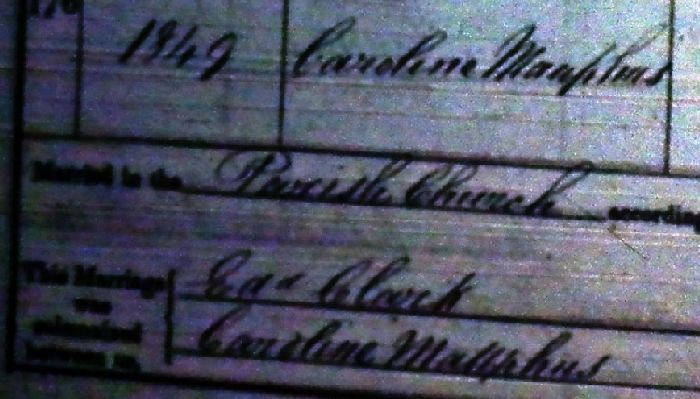 176
1849 Caroline Mauphus
Married in the Parish Church according
This Marriage
was
solemnized
between us,
Edwd Clark
Caroline Mauphus